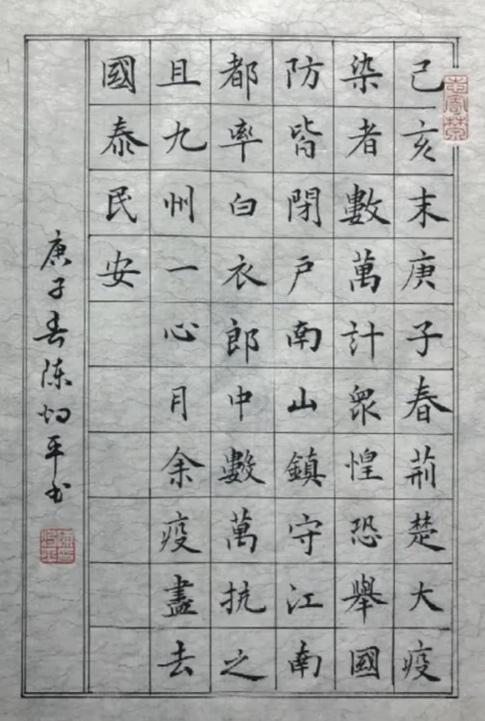 己亥末庚子春荊楚大疫
染者數萬計眾惶恐舉國
防皆閉戶南山鎮守江南
都率白衣郎中數萬抗之
且九州一心月余疫盡去
國泰民安
庚子春陳炯平书